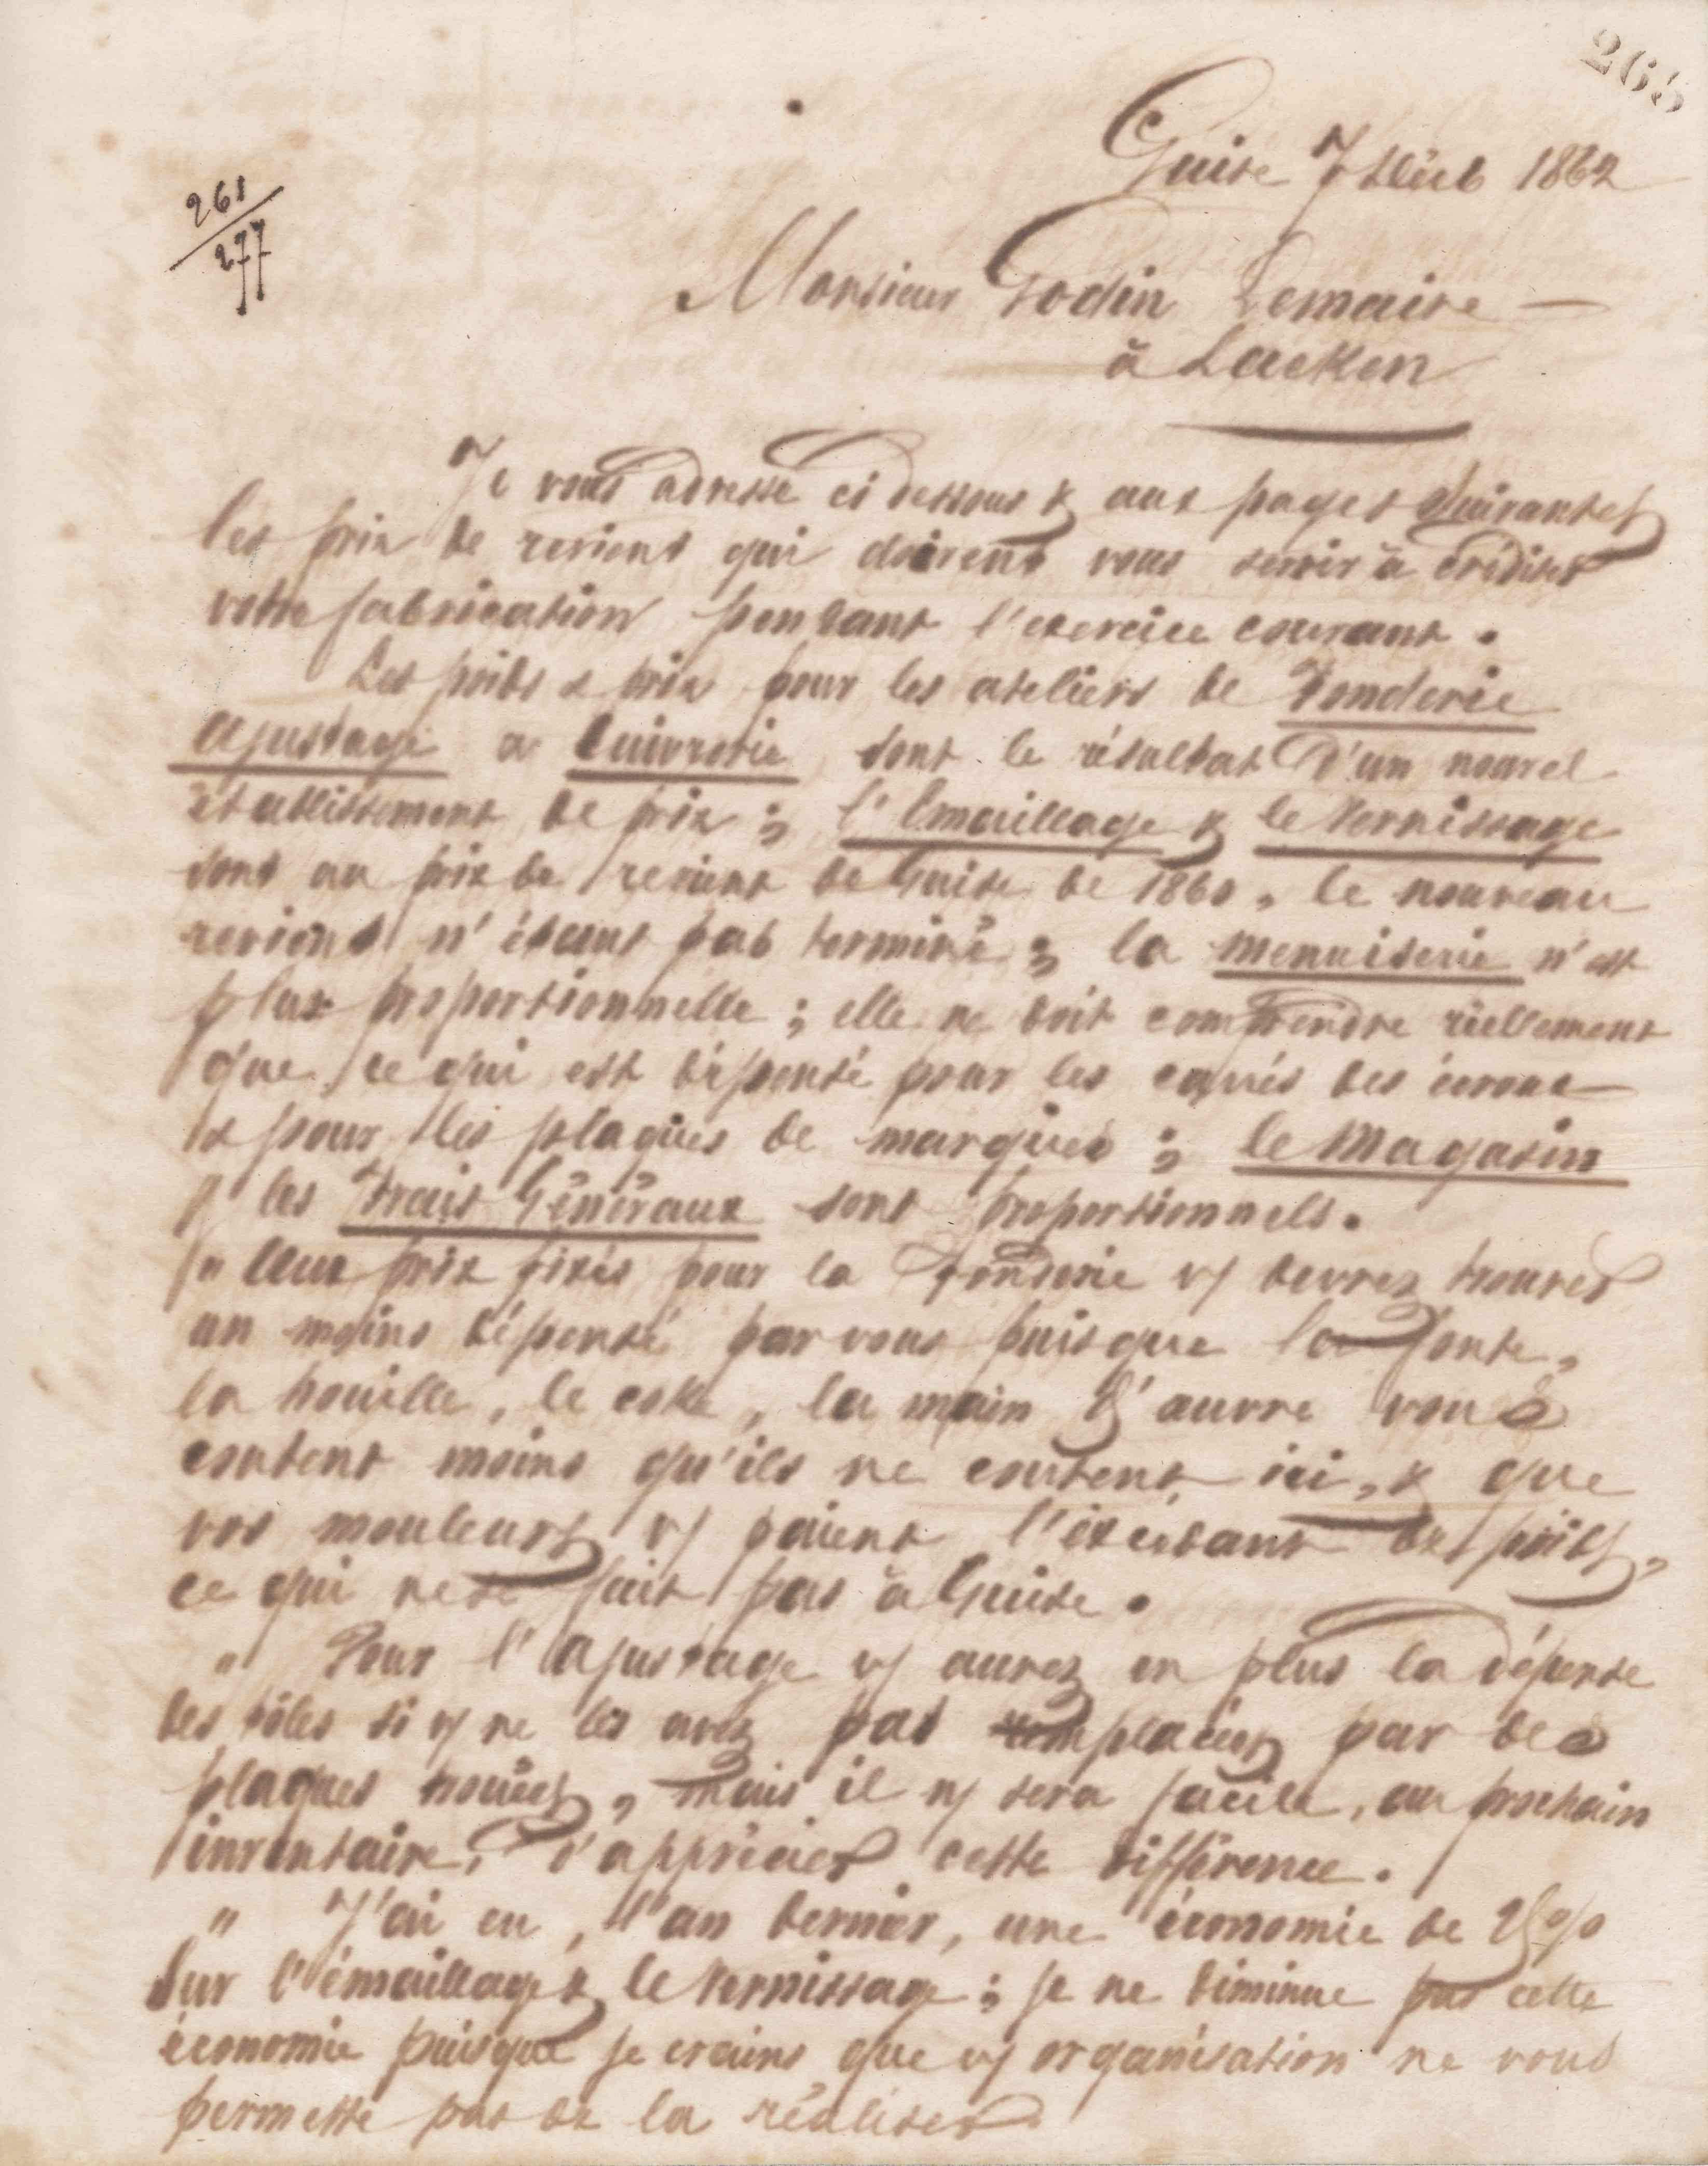 265
Guise 7 Août 1862
261
277
Monsieur Godin Lemaire
à Laeken
Je vous adresse ci dessous & aux pages suivantes
les prix de revient qui doivent vous servir à créditer
votre fabrication pendant l'exercice courant.
Les poids & prix pour les ateliers de Fonderie
Ajustage & Cuivrerie sont le résultat d'un nouvel
établissement de prix ; l'Emaillage & le Vernissage
sont au prix de revient de Guise de 1860, le nouveau
revient n'étant pas terminé ; la menuiserie n'est
plus proportionnelle ; elle ne doit comprendre réellement
que ce qui est dépensé pour les carrés des écrous
& pour les plaques de marques ; le Magasin
& les Frais Généraux sont proportionnels.
" Aux prix fixés pour la Fonderie vs devrez trouver
un moins dépensé par vous puisque la fonte,
la houille, le coke, la main d'œuvre vous
coutent moins qu'ils ne coutent ici, & que
vos mouleurs vs paient l'excédant des poids,
ce qui ne se fait pas à Guise.
" Pour l'Ajustage vs aurez en plus la dépense
des tôles si vs ne les avez pas remplacées par des
plaques , mais il vs sera facile, au prochain
inventaire, d'apprécier cette différence.
" J'ai eu, l'an dernier, une économie de 25 %
sur l'émaillage & le vernissage ; je ne diminue pas cette
économie puisque je crains que vs organisation ne vous
permette pas de la réaliser.